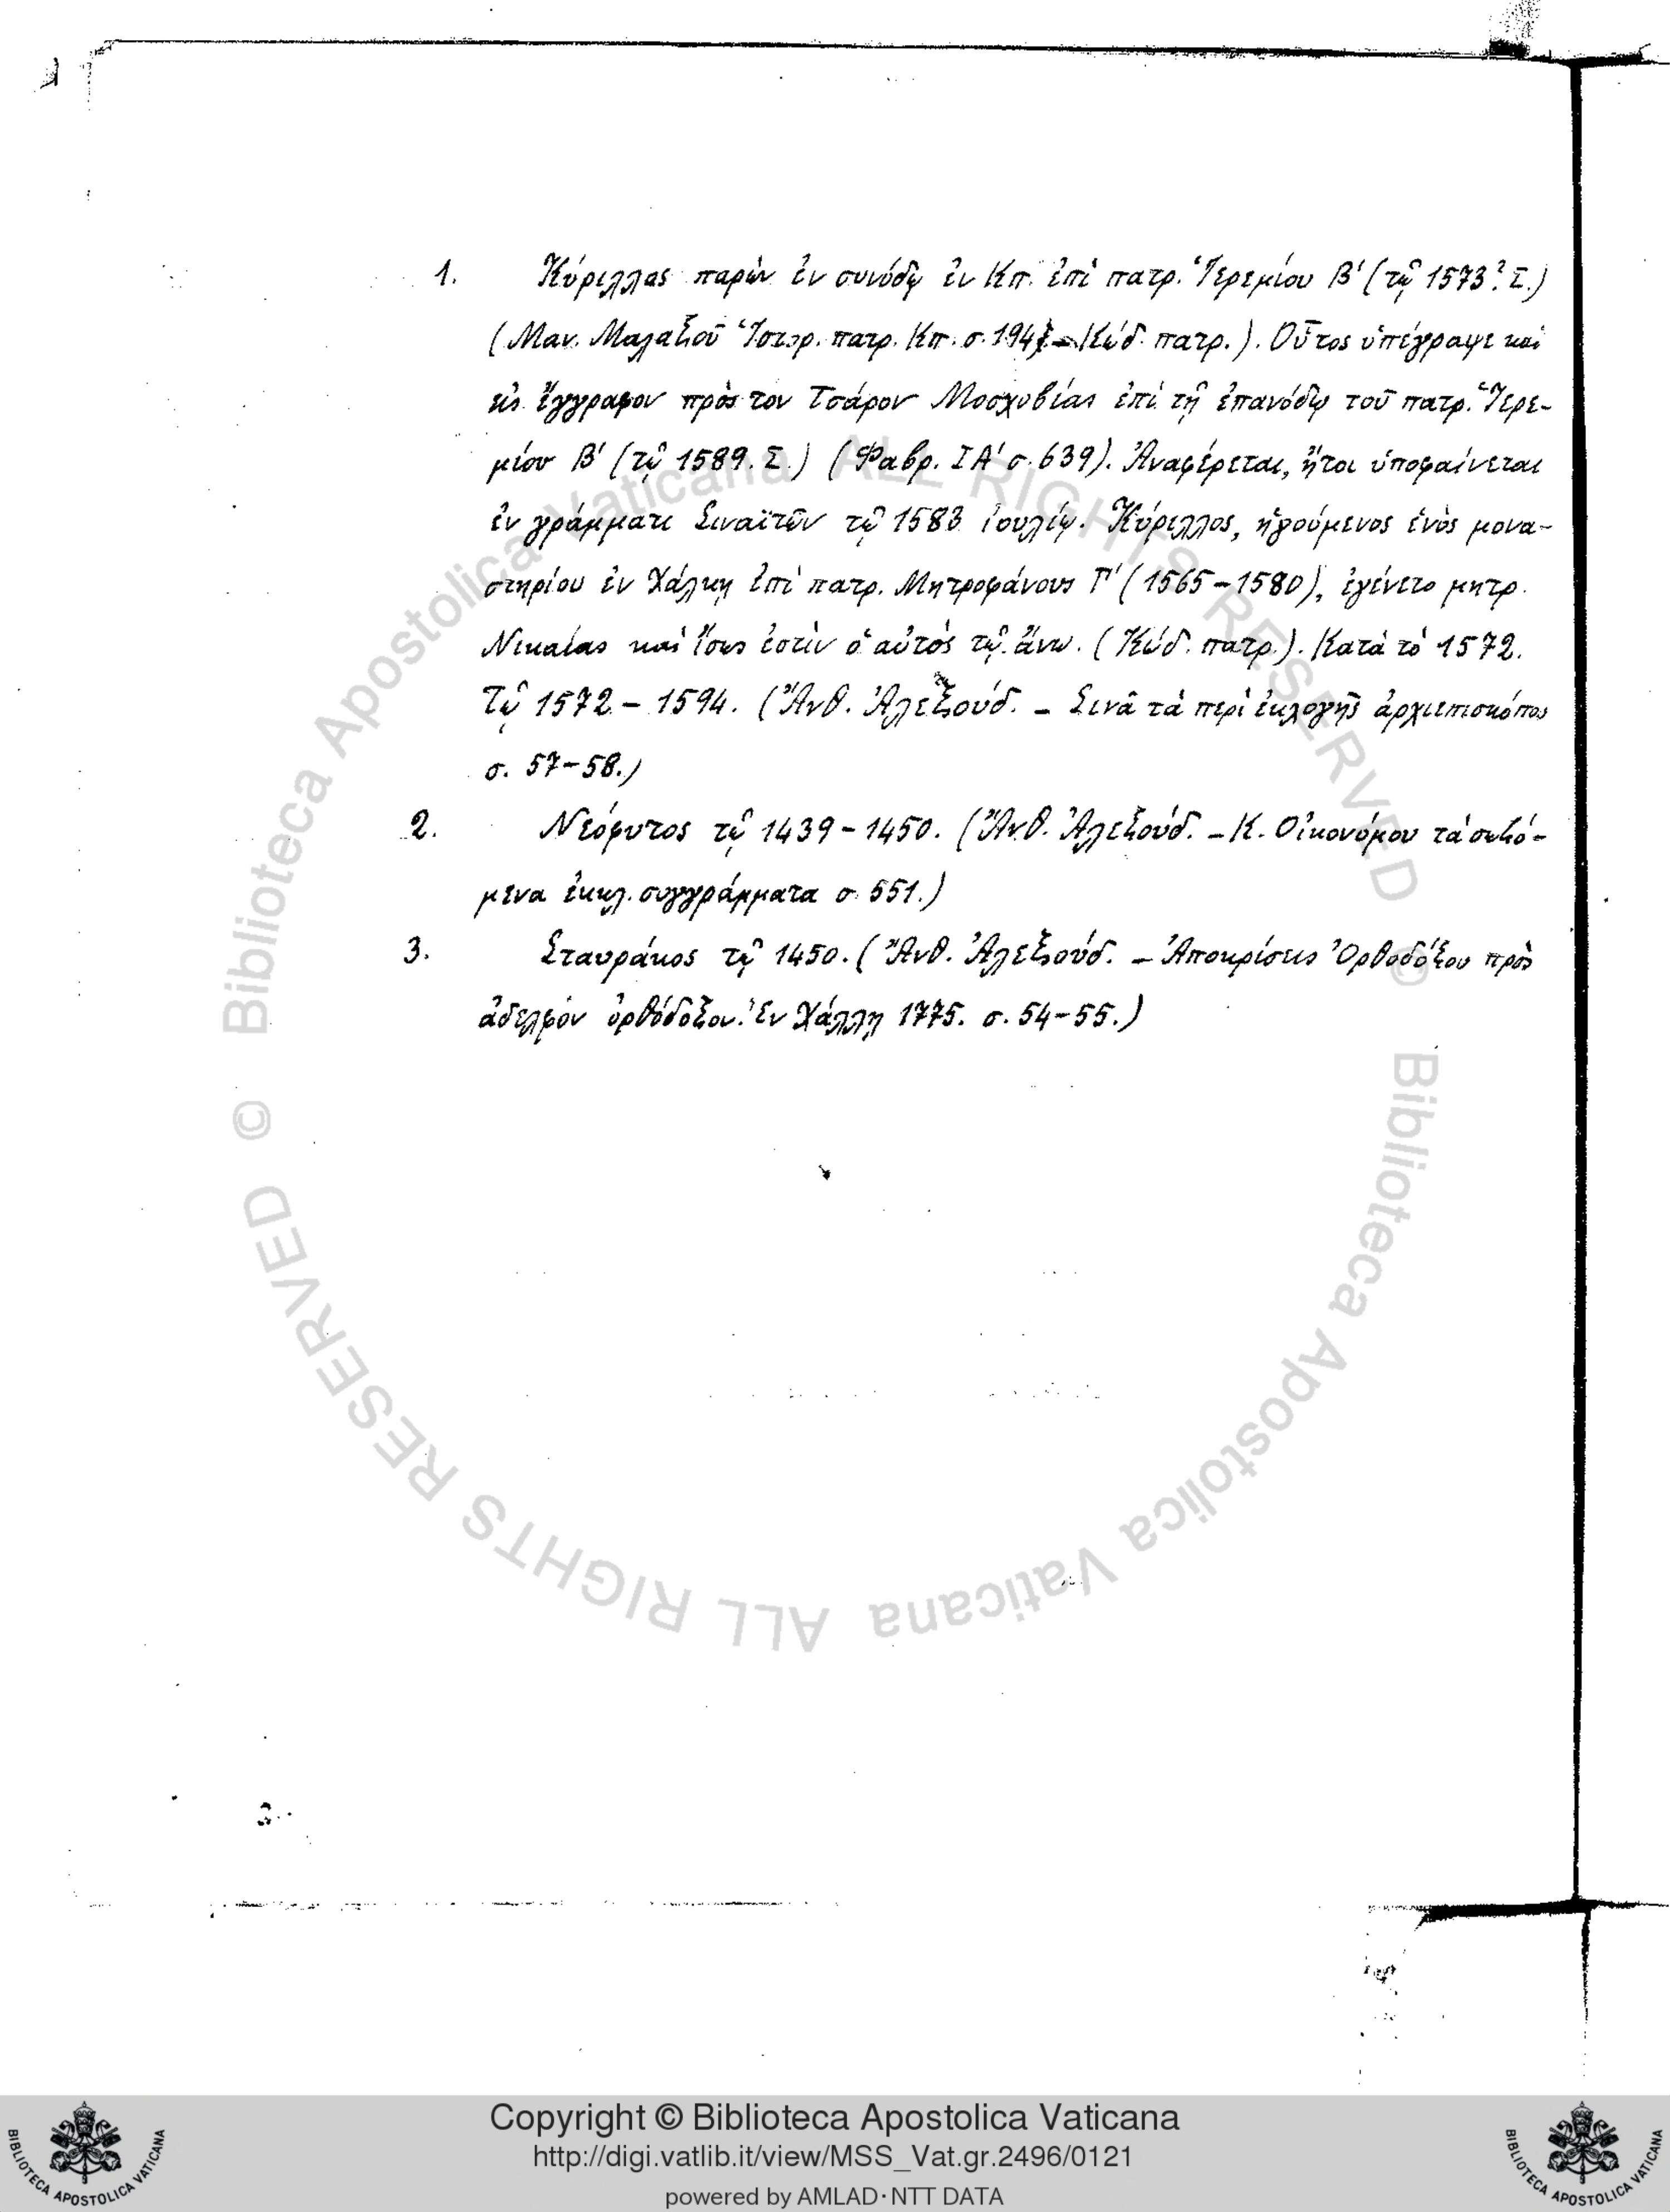 1. Κύριλλας παρὼν ἐν συνόδῳ ἐν Κπ. ἐπὶ πατρ. Ἱερεμίου Β' (τῷ 1573? Σ.)
(Μαν. Μαλαξοῦ Ἱστορ. πατρ. Κπ. σ. 194 - Κώδ. πατρ.). Οὗτος ὑπέγραψε καὶ
εἰς ἔγγραφον πρὸς τον Τσάρον Μοσχοβίας ἐπὶ τῇ ἐπανόδῳ τοῦ πατρ. Ἱερε-
μίου Β' (τῷ 1589. Σ.) (Φαβρ. ΙΑ' σ. 639). Ἀναφέρεται, ἤτοι ὑποφαίνεται
ἐν γράμματι Σιναϊτῶν τῷ 1583 ἰουλίῳ. Κύριλλος, ἡγούμενος ἑνὸς μονα-
στηρίου ἐν Χάλκῃ ἐπὶ πατρ. Μητροφάνους Γ' (1565-1580), ἐγένετο μητρ.
Νικαίας καὶ ἴσως ἐστὶν ὁ αὐτὸς τῷ ἄνω. (Κώδ. πατρ.). Κατὰ τὸ 1572.
Τῷ 1572 - 1594. (Ἄνθ. Ἀλεξούδ. - Σινᾶ τὰ περὶ ἐκλογῆς ἀρχιεπισκόπος
σ. 57-58.)
2. Νεόφυτος τῷ 1439-1450. (Ἄνθ. Ἀλεξούδ. - Κ. Οἰκονόμου τὰ σωζό-
μενα ἐκκλ. συγγράμματα σ. 551.)
3. Σταυράκος τῷ 1450. (Ἄνθ. Ἀλεξούδ. - Ἀποκρίσεις Ὀρθοδόξου πρὸς
ἀδελφόν ὀρθόδοξον. Ἐν Χάλλῃ 1775. σ. 54-55.)
© Biblioteca Apostolica Vaticana ALL RIGHTS RESERVED
© Biblioteca Apostolica Vaticana ALL RIGHTS RESERVED
Copyright © Biblioteca Apostolica Vaticana
http://digi.vatlib.it/view/MSS_Vat.gr.2496/0121
powered by AMLAD·NTT DATA
BIBLIOTECA APOSTOLICA VATICANA
BIBLIOTECA APOSTOLICA VATICANA